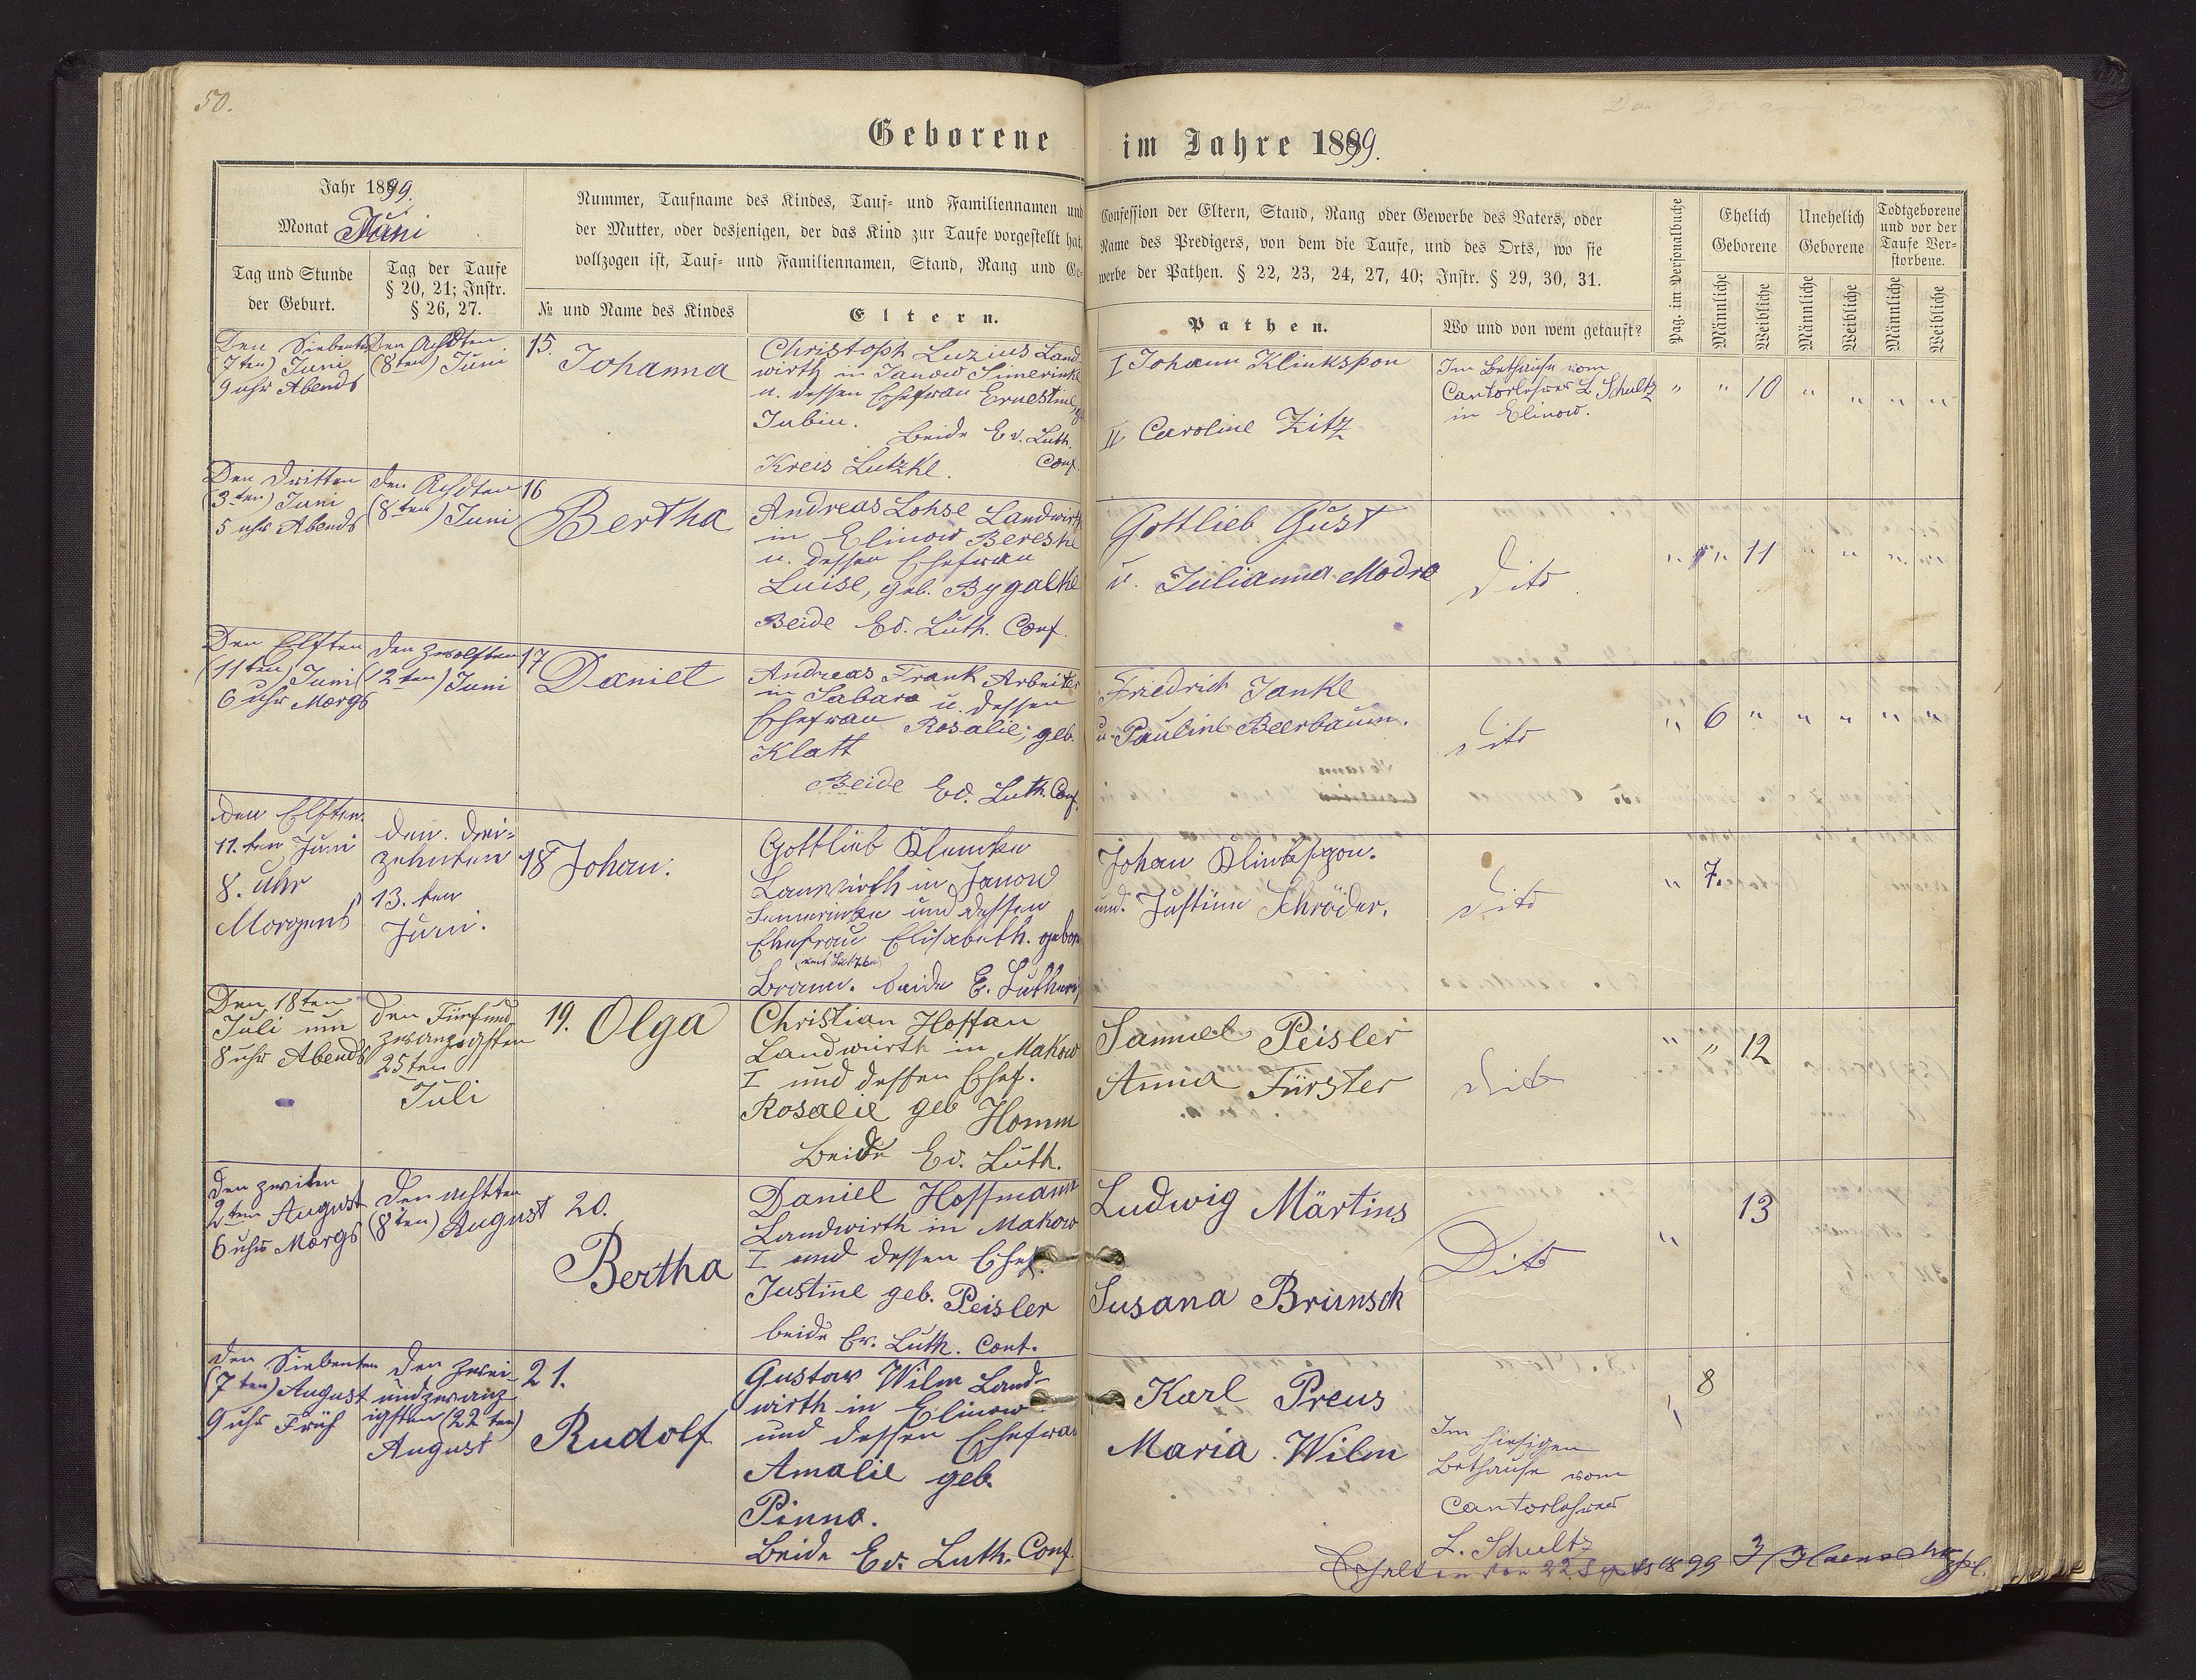 50.
Geborene im Jahre 1899.
Jahr 1899.
Monat Juni
Tag und Stunde
der Geburt.
Tag der Taufe
§ 20, 21; Instr.
§ 26, 27.
Nummer, Taufname des Kindes, Tauf- und Familiennamen und
der Mutter, oder desjenigen, der das Kind zur Taufe vorgestellt hat,
vollzogen ist, Tauf- und Familiennamen, Stand, Rang und Ge-
№ und Name des Kindes
Eltern.
Confession der Eltern, Stand, Rang oder Gewerbe des Vaters, oder
Name des Predigers, von dem die Taufe, und des Orts, wo sie
werbe der Pathen. § 22, 23, 24, 27, 40; Instr. § 29, 30, 31.
Pathen.
Wo und von wem getauft?
Pag. im Personalbuche
Ehelich
Geborene
Unehelich
Geborene
Todtgeborene
und vor der
Taufe Ver-
storbene.
Männliche
Weibliche
Männliche
Weibliche
Männliche
Weibliche
Den Siebenten
(7ten) Juni
9 uhr Abends
Den Achten
(8ten) Juni
15.
Johanna
Christoph Luzius Land-
wirth in Janow Simerinke
u. dessen Ehefrau Ernestine,
Jubin.
Beide Ev. Luth.
Kreis Lutzke. Conf.
I Johann Klinkspon
II Caroline Zitz
Im Bethause vom
Cantorlehrer L. Schultz
in Elinow.
" " 10 " " " "
Den Dritten
(3ten) Juni
5 uhr Abends
den Achten
(8ten) Juni
16
Bertha
Andreas Lohse Landwirth
in Elinow Bereske
u. dessen Ehefrau
Luise, geb. Bygalke
Beide Ev. Luth. Conf.
Gottlieb Gust
u. Julianna Modro
Dito
" " 11 " " " "
Den Elften
(11ten) Juni
6 uhr Morgs
den Zwölften
(12ten) Juni
17
Daniel
Andreas Frank Arbeiter
in Sabara u. dessen
Ehefrau Rosalie, geb.
Klatt
Beide Ev. Luth. Conf.
Friedrich Janke
u. Pauline Beerbaum.
Dito
" 6 " " " " "
den Elften
11.ten Juni
8. uhr
Morgens
den. drei-
zehnten
13.ten
Juni.
18
Johan.
Gottlieb Klemke
Landwirth in Janow
Semerinke und dessen
Ehefrau Elisabeth. gebor
Braun. beide E. Luther
Johan Klinkspon.
und. Justine Schröder.
Dito
" 7.
Den 18ten
Juli um
8 uhr Abends
den Fünfund
zwanzigsten
25ten
Juli
19.
Olga
Christian Hoffan
Landwirth in Makow
I und dessen Ehef.
Rosalie geb Homm
Beide Ev. Luth.
Samuel Peisler
Anna Fürster
Dito
" " 12
den zweiten
2ten August
6 uhr Morgs
Den achten
(8ten) August
20.
Bertha
Daniel Hoffmann
Landwirth in Makow
I und dessen Ehef.
Justine geb. Peisler
beide Ev. Luth. Conf.
Ludwig Märtins
Susana Brunsch
Dito
" 13
den Siebenten
(7ten) August
9 uhr Früh
den zwei-
undzwanz-
igsten (22ten)
August
21.
Rudolf
Gustav Wilm Land-
wirth in Elinow
und dessen Ehefrau
Amalie geb.
Pinno.
Beide Ev. Luth. Conf.
Karl Preus
Maria Wilm
Im hiesigen
Bethause vom
Cantorlehrer
L. Schultz
" 8
Erhalten den 22. Septbr 1899